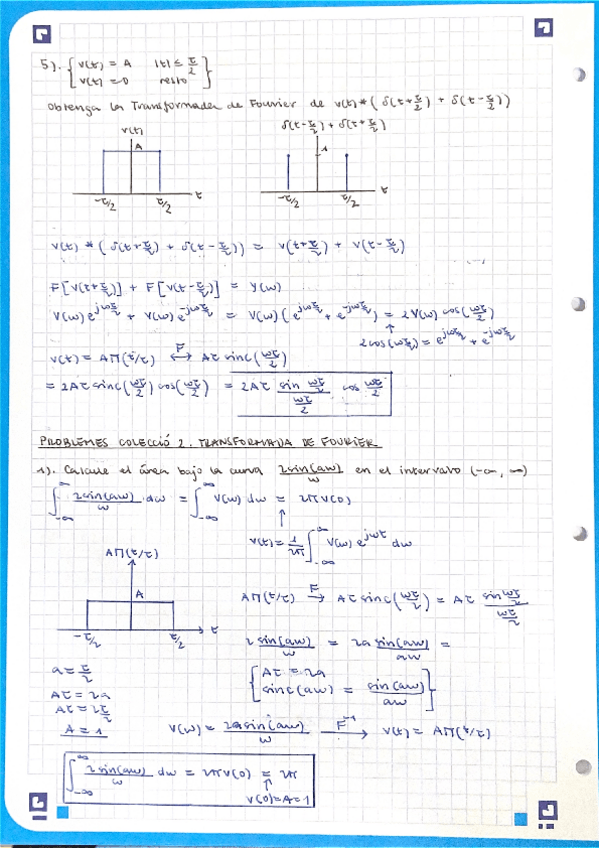 5). { v(t) = A |t| ≤ τ/2
v(t) = 0 resto }
Obtenga la Transformada de Fourier de v(t) * (δ(t+τ/2) + δ(t-τ/2))
v(t) δ(t-τ/2) + δ(t+τ/2)
A 1
-τ/2 τ/2 t -τ/2 τ/2 t
v(t) * (δ(t+τ/2) + δ(t-τ/2)) = v(t+τ/2) + v(t-τ/2)
F[v(t+τ/2)] + F[v(t-τ/2)] = Y(ω)
V(ω) e^{jωτ/2} + V(ω) e^{-jωτ/2} = V(ω) (e^{jωτ/2} + e^{-jωτ/2}) = 2V(ω) cos(ωτ/2)
2cos(ωτ/2) = e^{jωτ/2} + e^{-jωτ/2}
v(t) = AΠ(t/τ) ⟷^F Aτ sinc(ωτ/2)
= 2Aτ sinc(ωτ/2) cos(ωτ/2) = 2Aτ sin ωτ/2 / ωτ/2 cos ωτ/2
PROBLEMES COLECCIÓ 2. TRANSFORMADA DE FOURIER
1). Calcule el área bajo la curva 2sin(aω)/ω en el intervalo (-∞, ∞)
∫_{-∞}^{∞} 2sin(aω)/ω · dω = ∫_{-∞}^{∞} V(ω) dω = 2π v(0)
↑
v(t) = 1/2π ∫_{-∞}^{∞} V(ω) e^{jωt} dω
AΠ(t/τ)
A
-τ/2 τ/2 t
AΠ(t/τ) →^F Aτ sinc(ωτ/2) = Aτ sin ωτ/2 / ωτ/2
2 sin(aω)/ω = 2a sin(aω)/aω =
{ Aτ = 2a
sinc(aω) = sin(aω)/aω }
a = τ/2
Aτ = 2a
Aτ = 2τ/2
A = 1
V(ω) = 2a sin(aω)/ω →^{F^{-1}} v(t) = AΠ(t/τ)
∫_{-∞}^{∞} 2sin(aω)/ω dω = 2π v(0) = 2π
↑
v(0) = A = 1